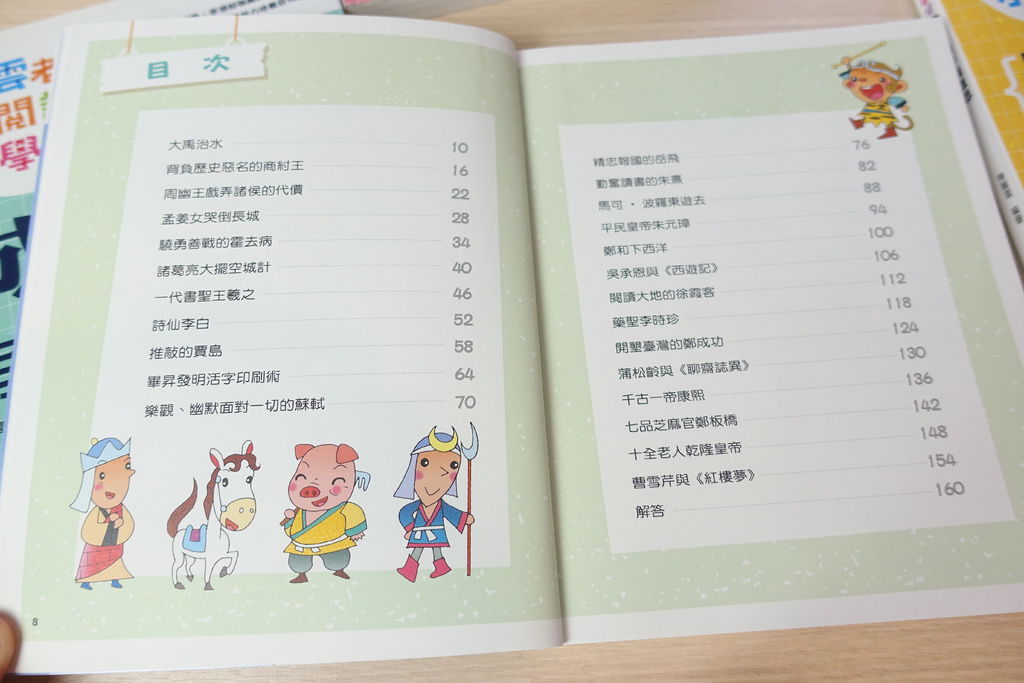 目 次
大禹治水 10
背負歷史惡名的商紂王 16
周幽王戲弄諸侯的代價 22
孟姜女哭倒長城 28
驍勇善戰的霍去病 34
諸葛亮大擺空城計 40
一代書聖王羲之 46
詩仙李白 52
推敲的賈島 58
畢昇發明活字印刷術 64
樂觀、幽默面對一切的蘇軾 70
8
精忠報國的岳飛 76
勤奮讀書的朱熹 82
馬可・波羅東遊去 88
平民皇帝朱元璋 94
鄭和下西洋 100
吳承恩與《西遊記》 106
閱讀大地的徐霞客 112
藥聖李時珍 118
開墾臺灣的鄭成功 124
蒲松齡與《聊齋誌異》 130
千古一帝康熙 136
七品芝麻官鄭板橋 142
十全老人乾隆皇帝 148
曹雪芹與《紅樓夢》 154
解答 160
雲老
閱
學